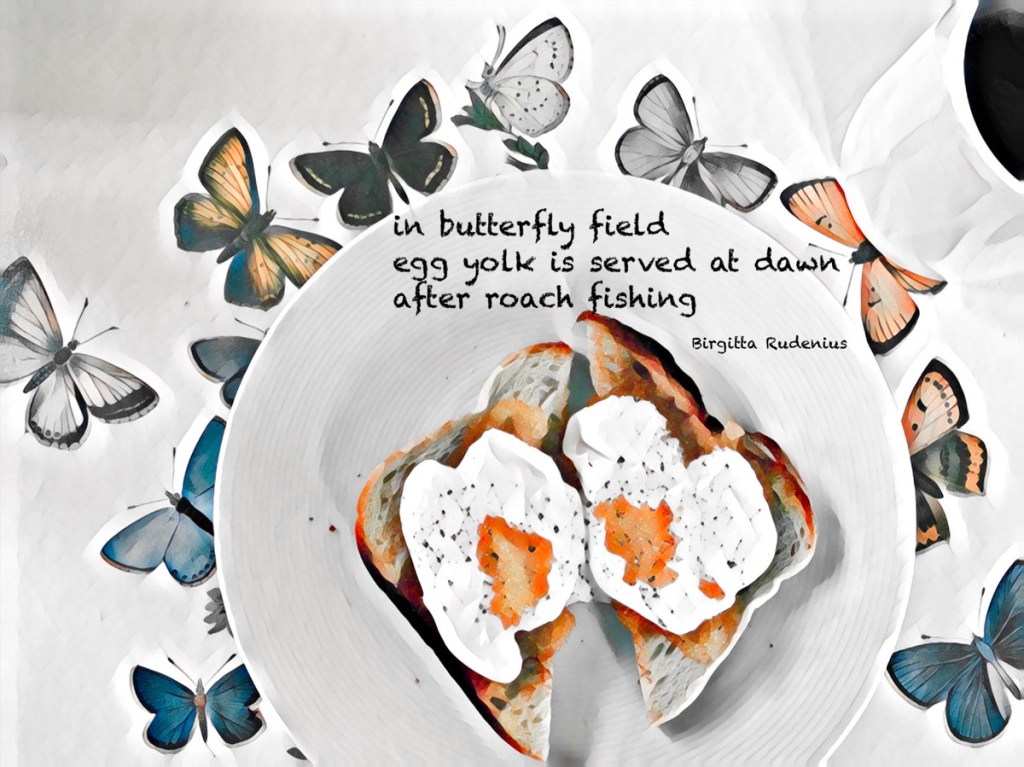 in butterfly field
egg yolk is served at dawn
after roach fishing
Birgitta Rudenius